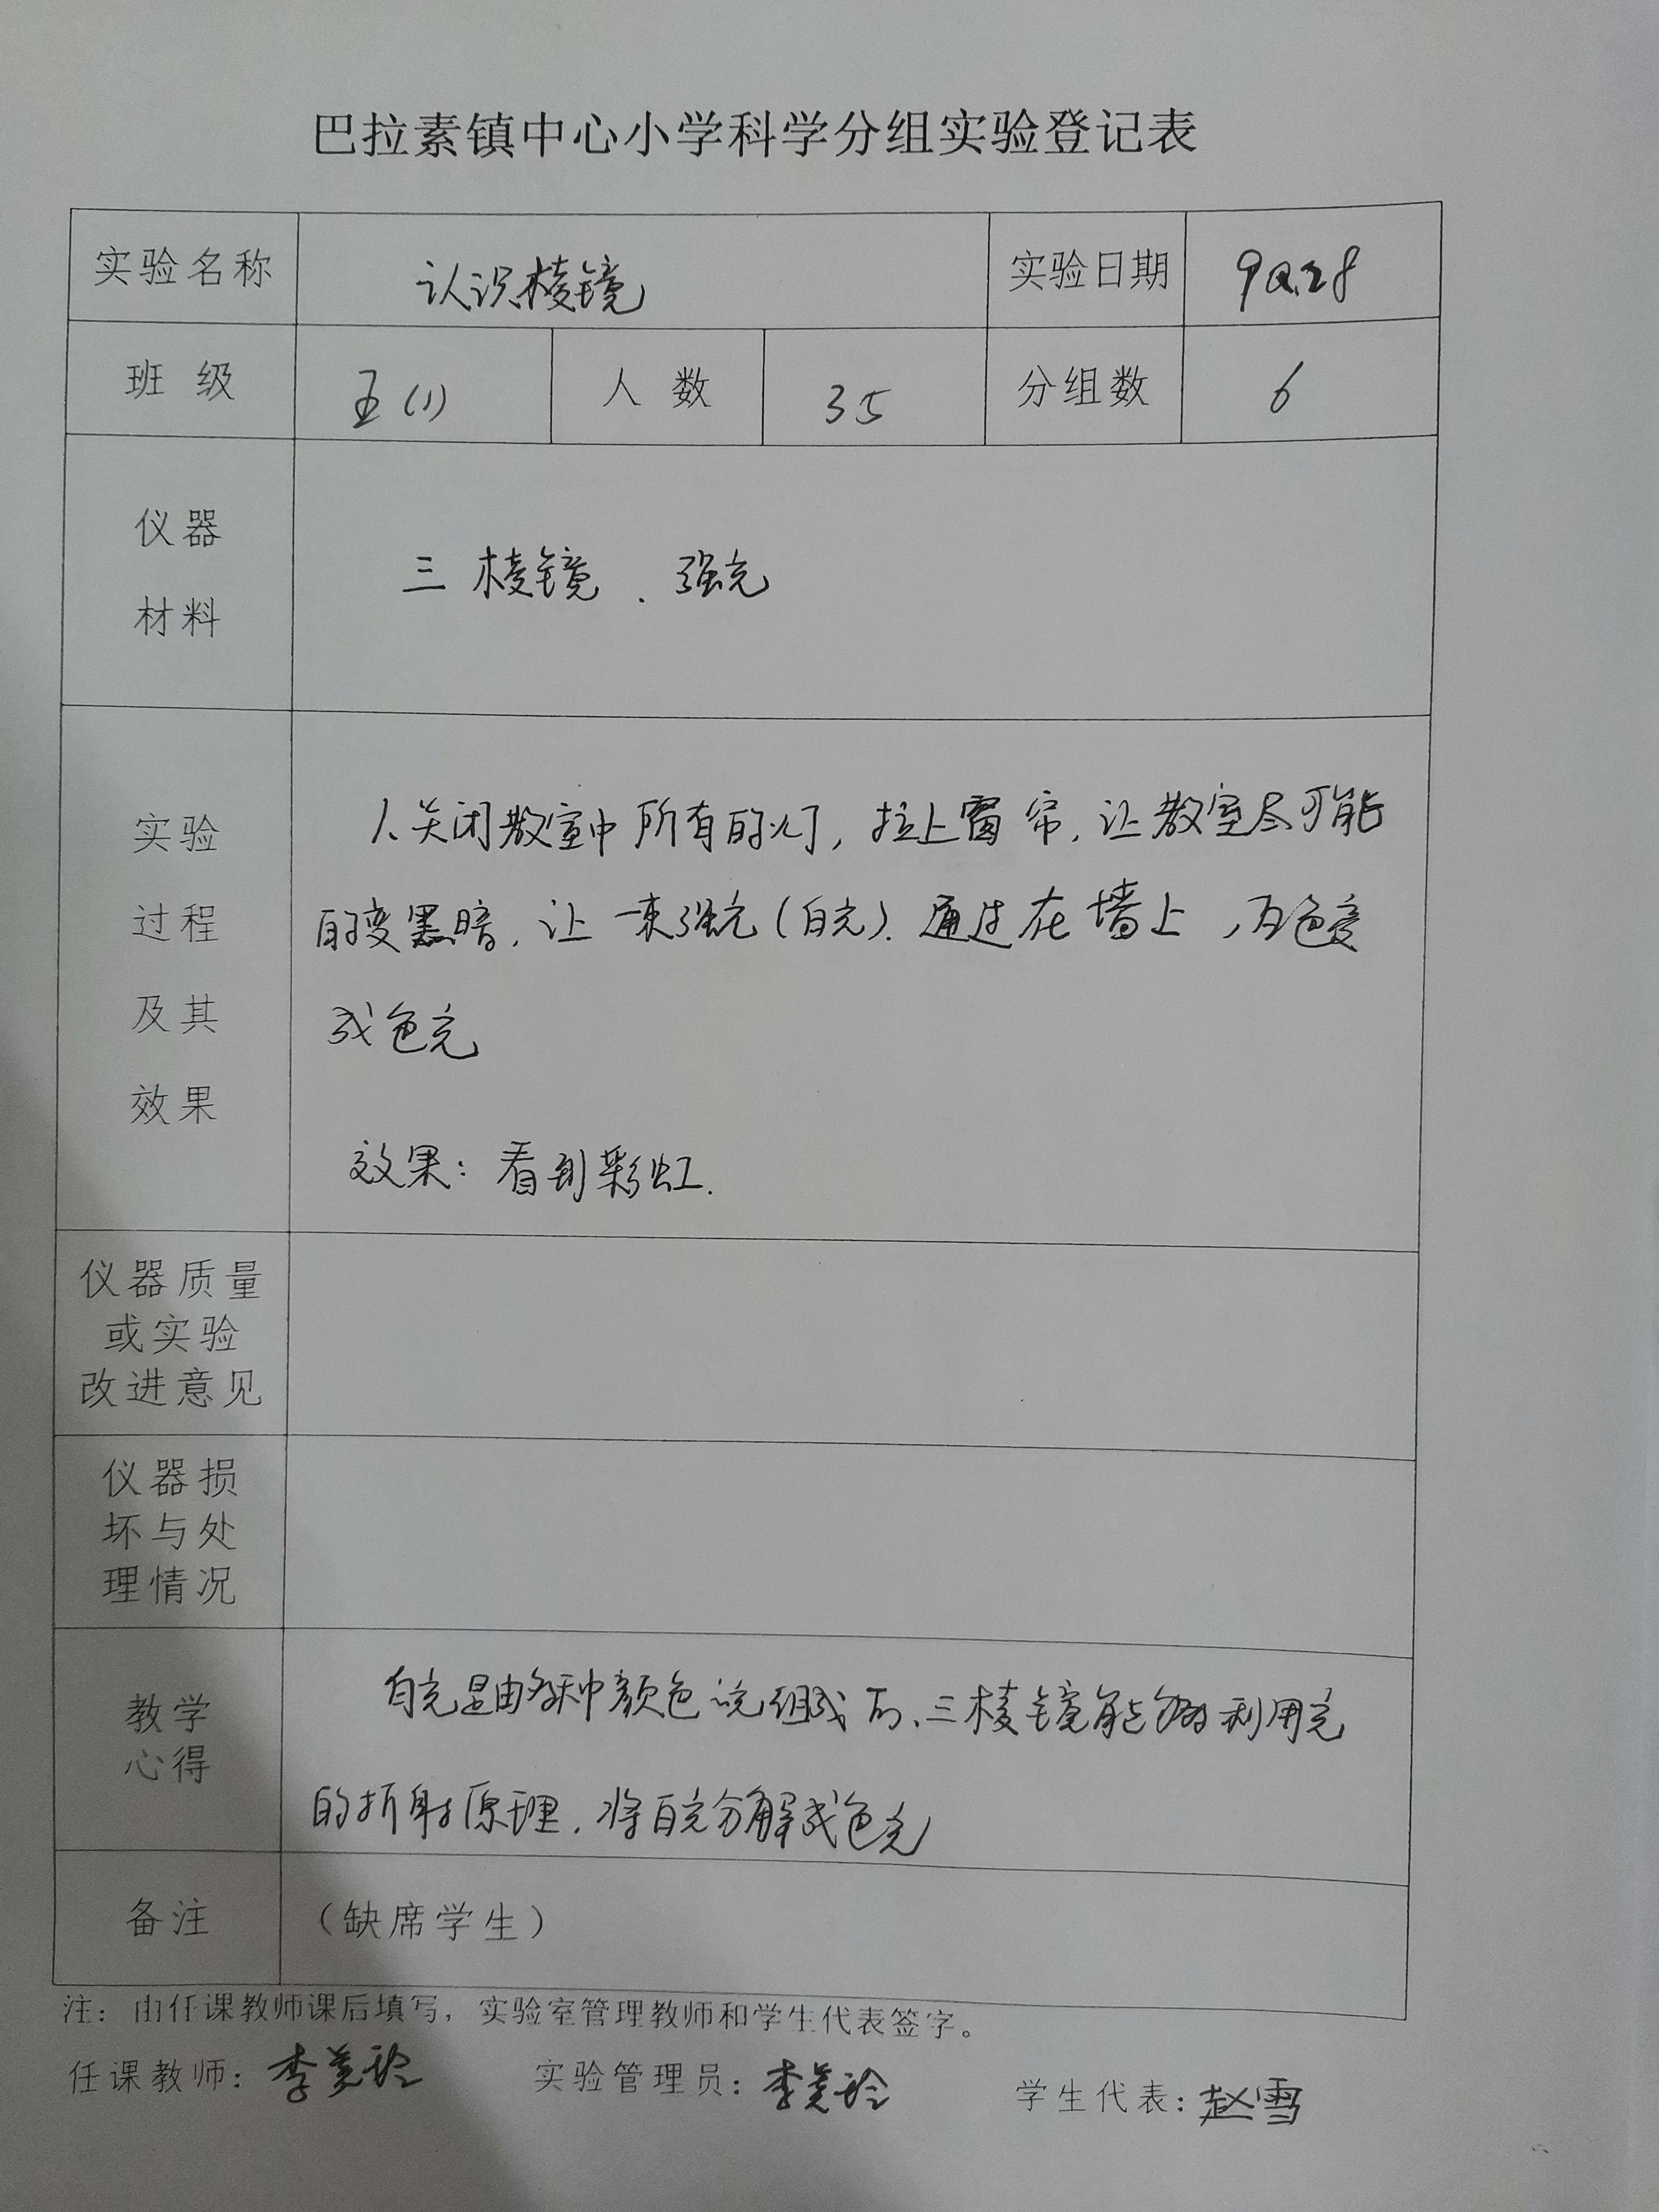 巴拉素镇中心小学科学分组实验登记表
实验名称 认识棱镜 实验日期
班 级 五(1) 人 数 35 分组数 6
仪器
材料
三棱镜、强光
实验
过程
及其
效果
1、关闭教室中所有的灯,拉上窗帘,让教室尽可能
的变黑暗,让一束强光(白光)、通过在墙上,白色变
成色光
效果:看到彩虹.
仪器质量
或实验
改进意见
仪器损
坏与处
理情况
教学
心得
白光是由各种颜色光组成的、三棱镜能够利用光
的折射原理,将白光分解成色光
备注 (缺席学生)
注:由任课教师课后填写,实验室管理教师和学生代表签字。
任课教师:李美玲 实验管理员:李美玲 学生代表:赵雪